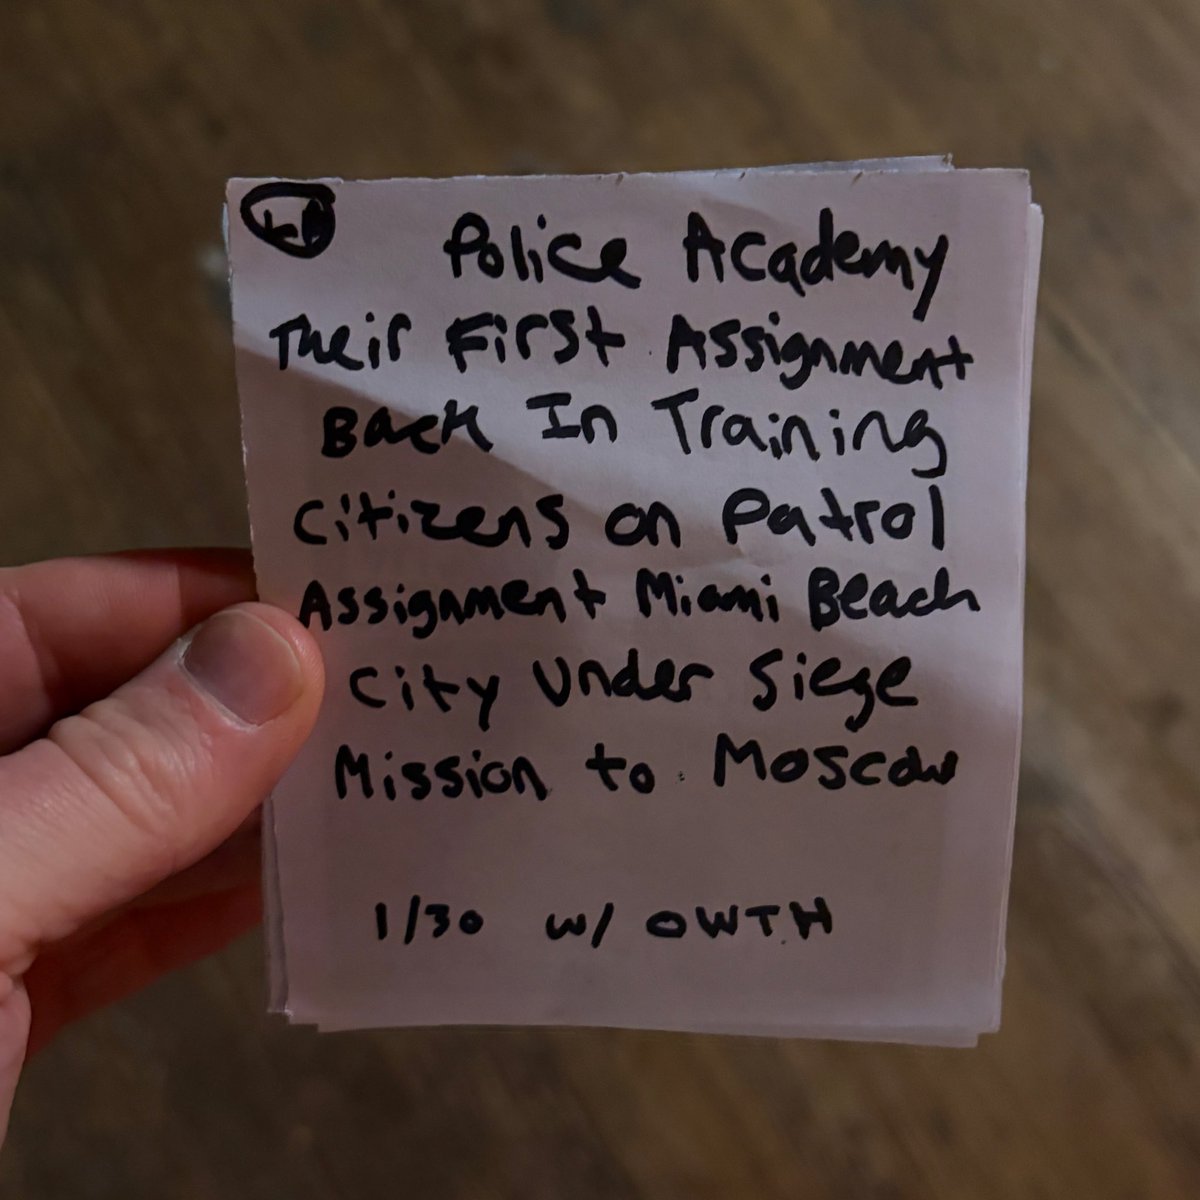 Police Academy
Their First Assignment
Back In Training
Citizens on Patrol
Assignment Miami Beach
City Under Siege
Mission to Moscow
1/30 w/ OWTH